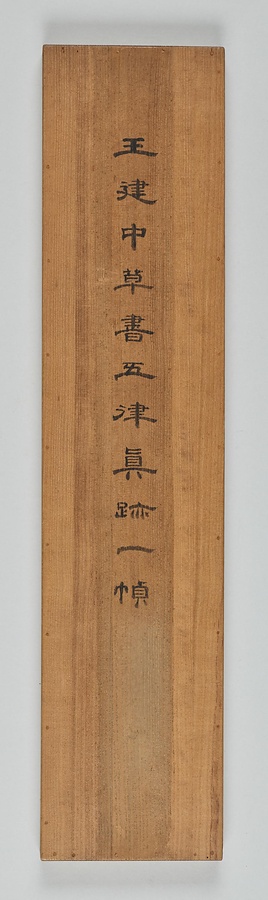 王建中草書五律眞跡一幀